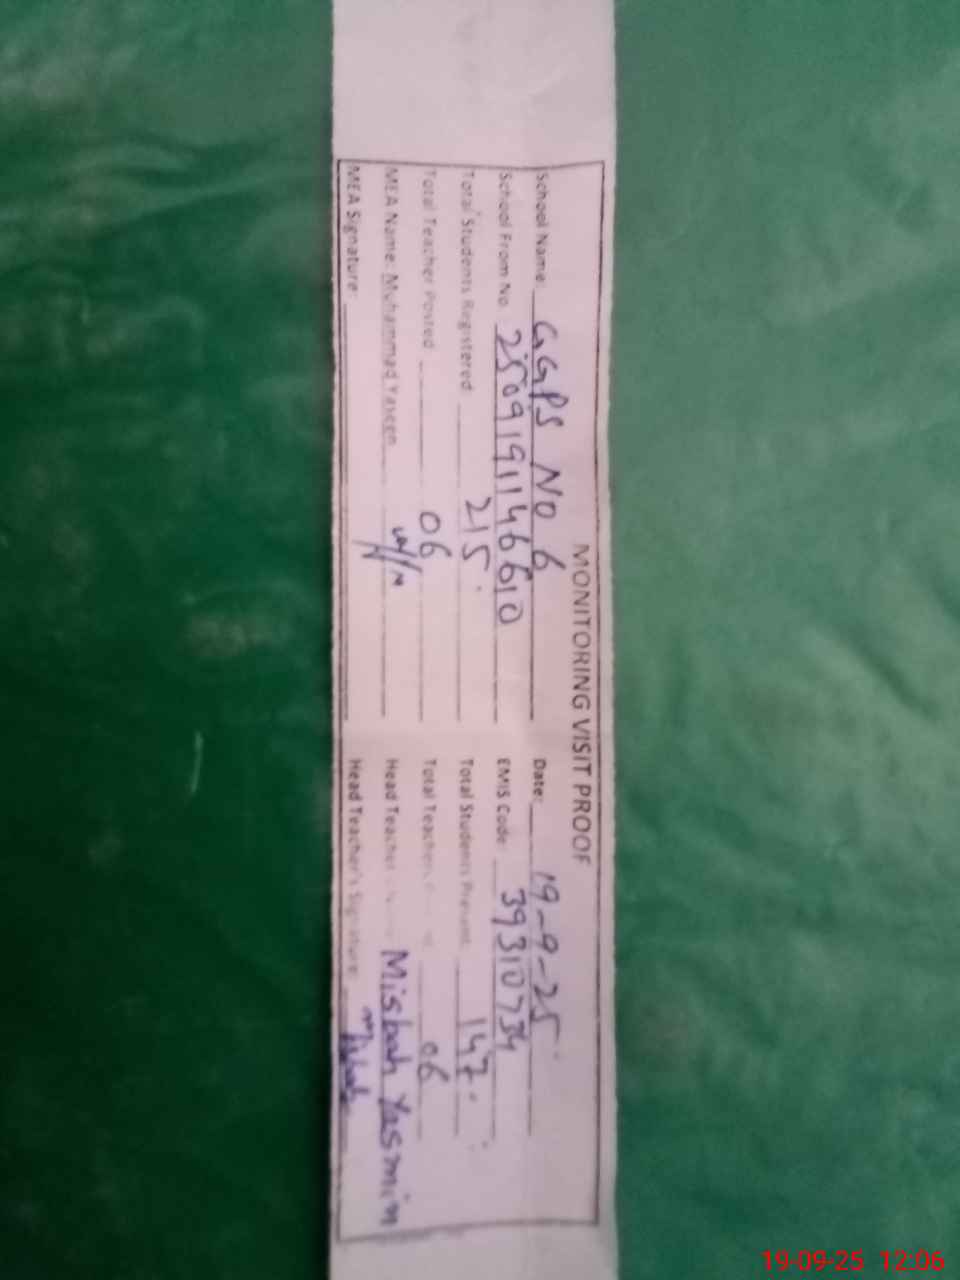 MONITORING VISIT PROOF
School Name: GGPS No 6 Date: 19-9-25
School From No. 2509191146610 EMIS Code: 39310734
Total Students Registered: 215 Total Students Present: 147
Total Teacher Posted 06 Total Teacher 06
MEA Name: Muhammad Yaseen Head Teacher Misbah Yasmin
MEA Signature: Head Teacher's Signature: Misbah
19-09-25 12:06